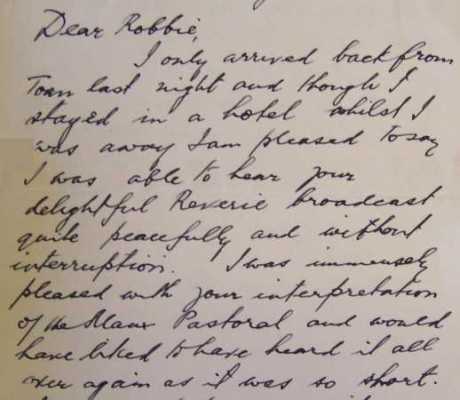 Dear Robbie,
I only arrived back from
Town last night and though I
stayed in a hotel whilst I
was away I am pleased to say
I was able to hear your
delightful Reverie broadcast
quite peacefully and without
interruption. I was immensely
pleased with your interpretation
of the Manx Pastoral and would
have liked to have heard it all
over again as it was so short.